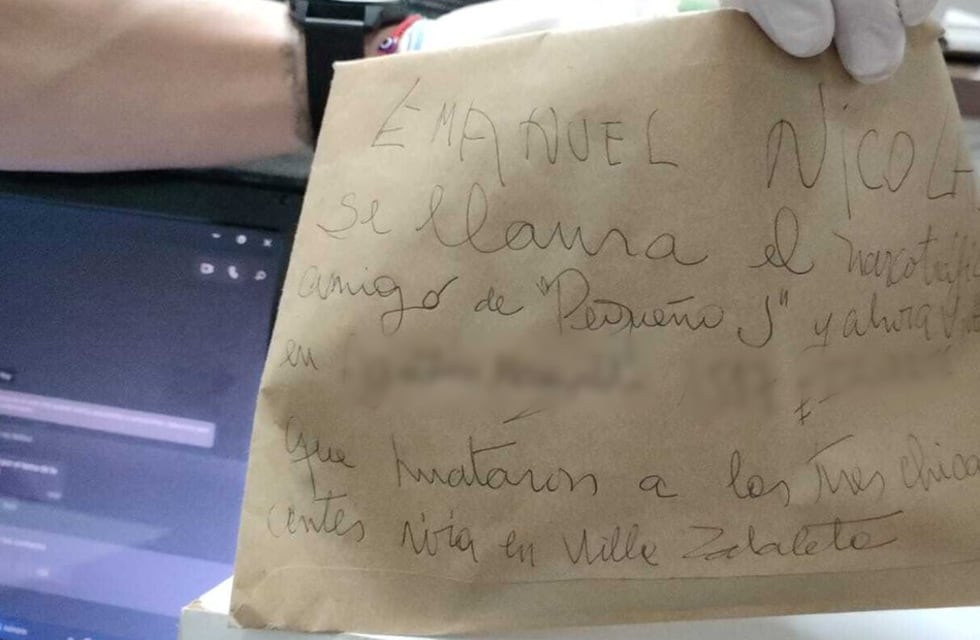 EMANUEL NICOLA
Se llama el narcotrafi
amigo de "Pequeño J" y ahora
en
que mataron a las tres chica
centes vivia en Villa Zabaleta